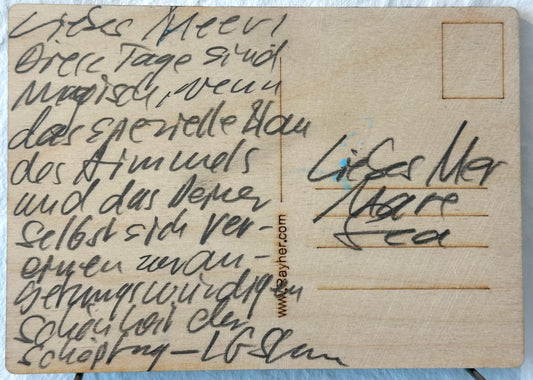 Liebes Meer!
Diese Tage sind
magisch, wenn
das spezielle Blau
des Himmels
und das Deiner
Selbst sich ver-
einen zur an-
betungswürdigen
Schönheit der
Schöpfung - LG
Liebes Mer
Mare
Sea
www.Rayher.com